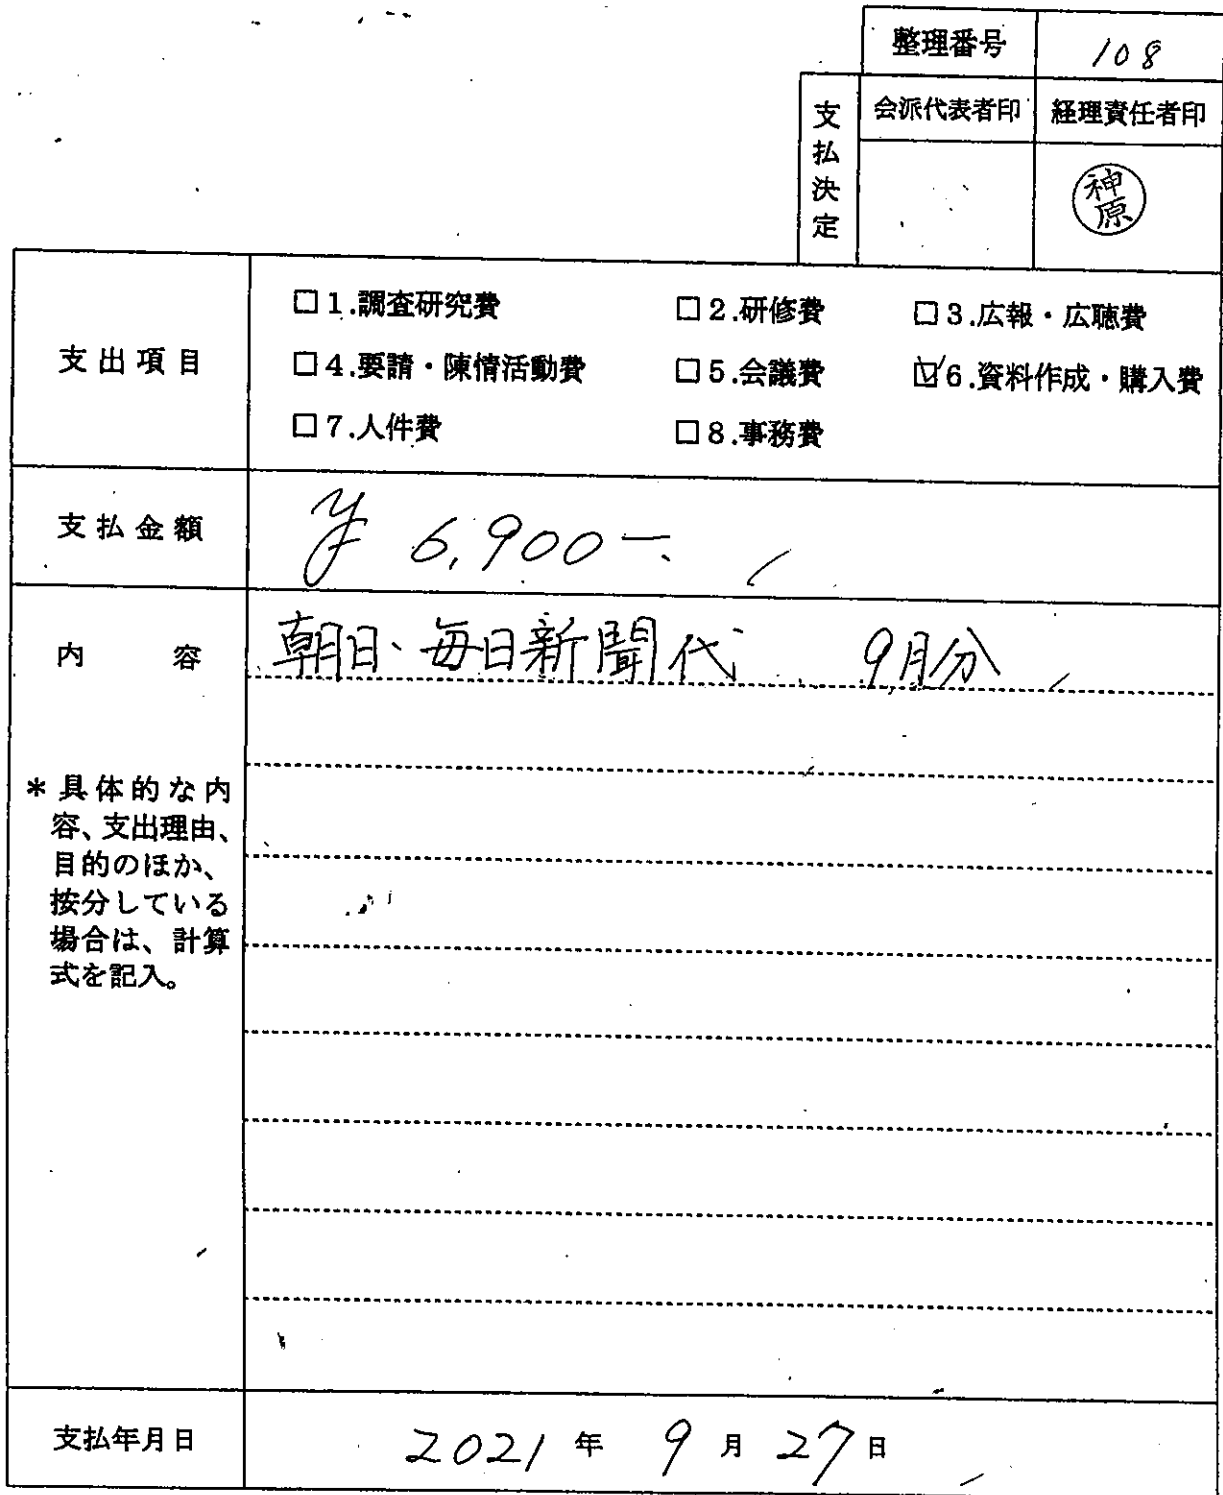 整理番号 108
支払決定 会派代表者印 経理責任者印
神原
支出項目
□1.調査研究費 □2.研修費 □3.広報・広聴費
□4.要請・陳情活動費 □5.会議費 ☑6.資料作成・購入費
□7.人件費 □8.事務費
支払金額 ¥6,900-.
内容 朝日、毎日新聞代 9月分
*具体的な内
容、支出理由、
目的のほか、
按分している
場合は、計算
式を記入。
支払年月日 2021年9月27日